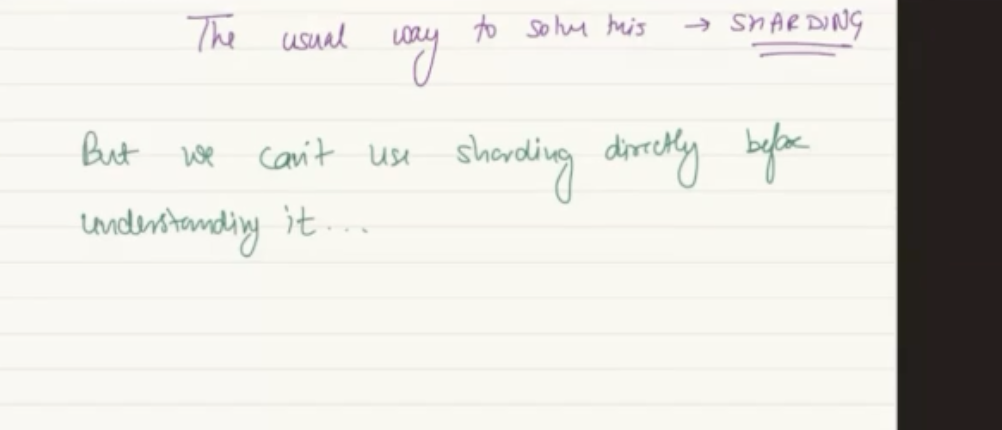 The usual way to solve this → SHARDING
But we can't use sharding directly before
understanding it...